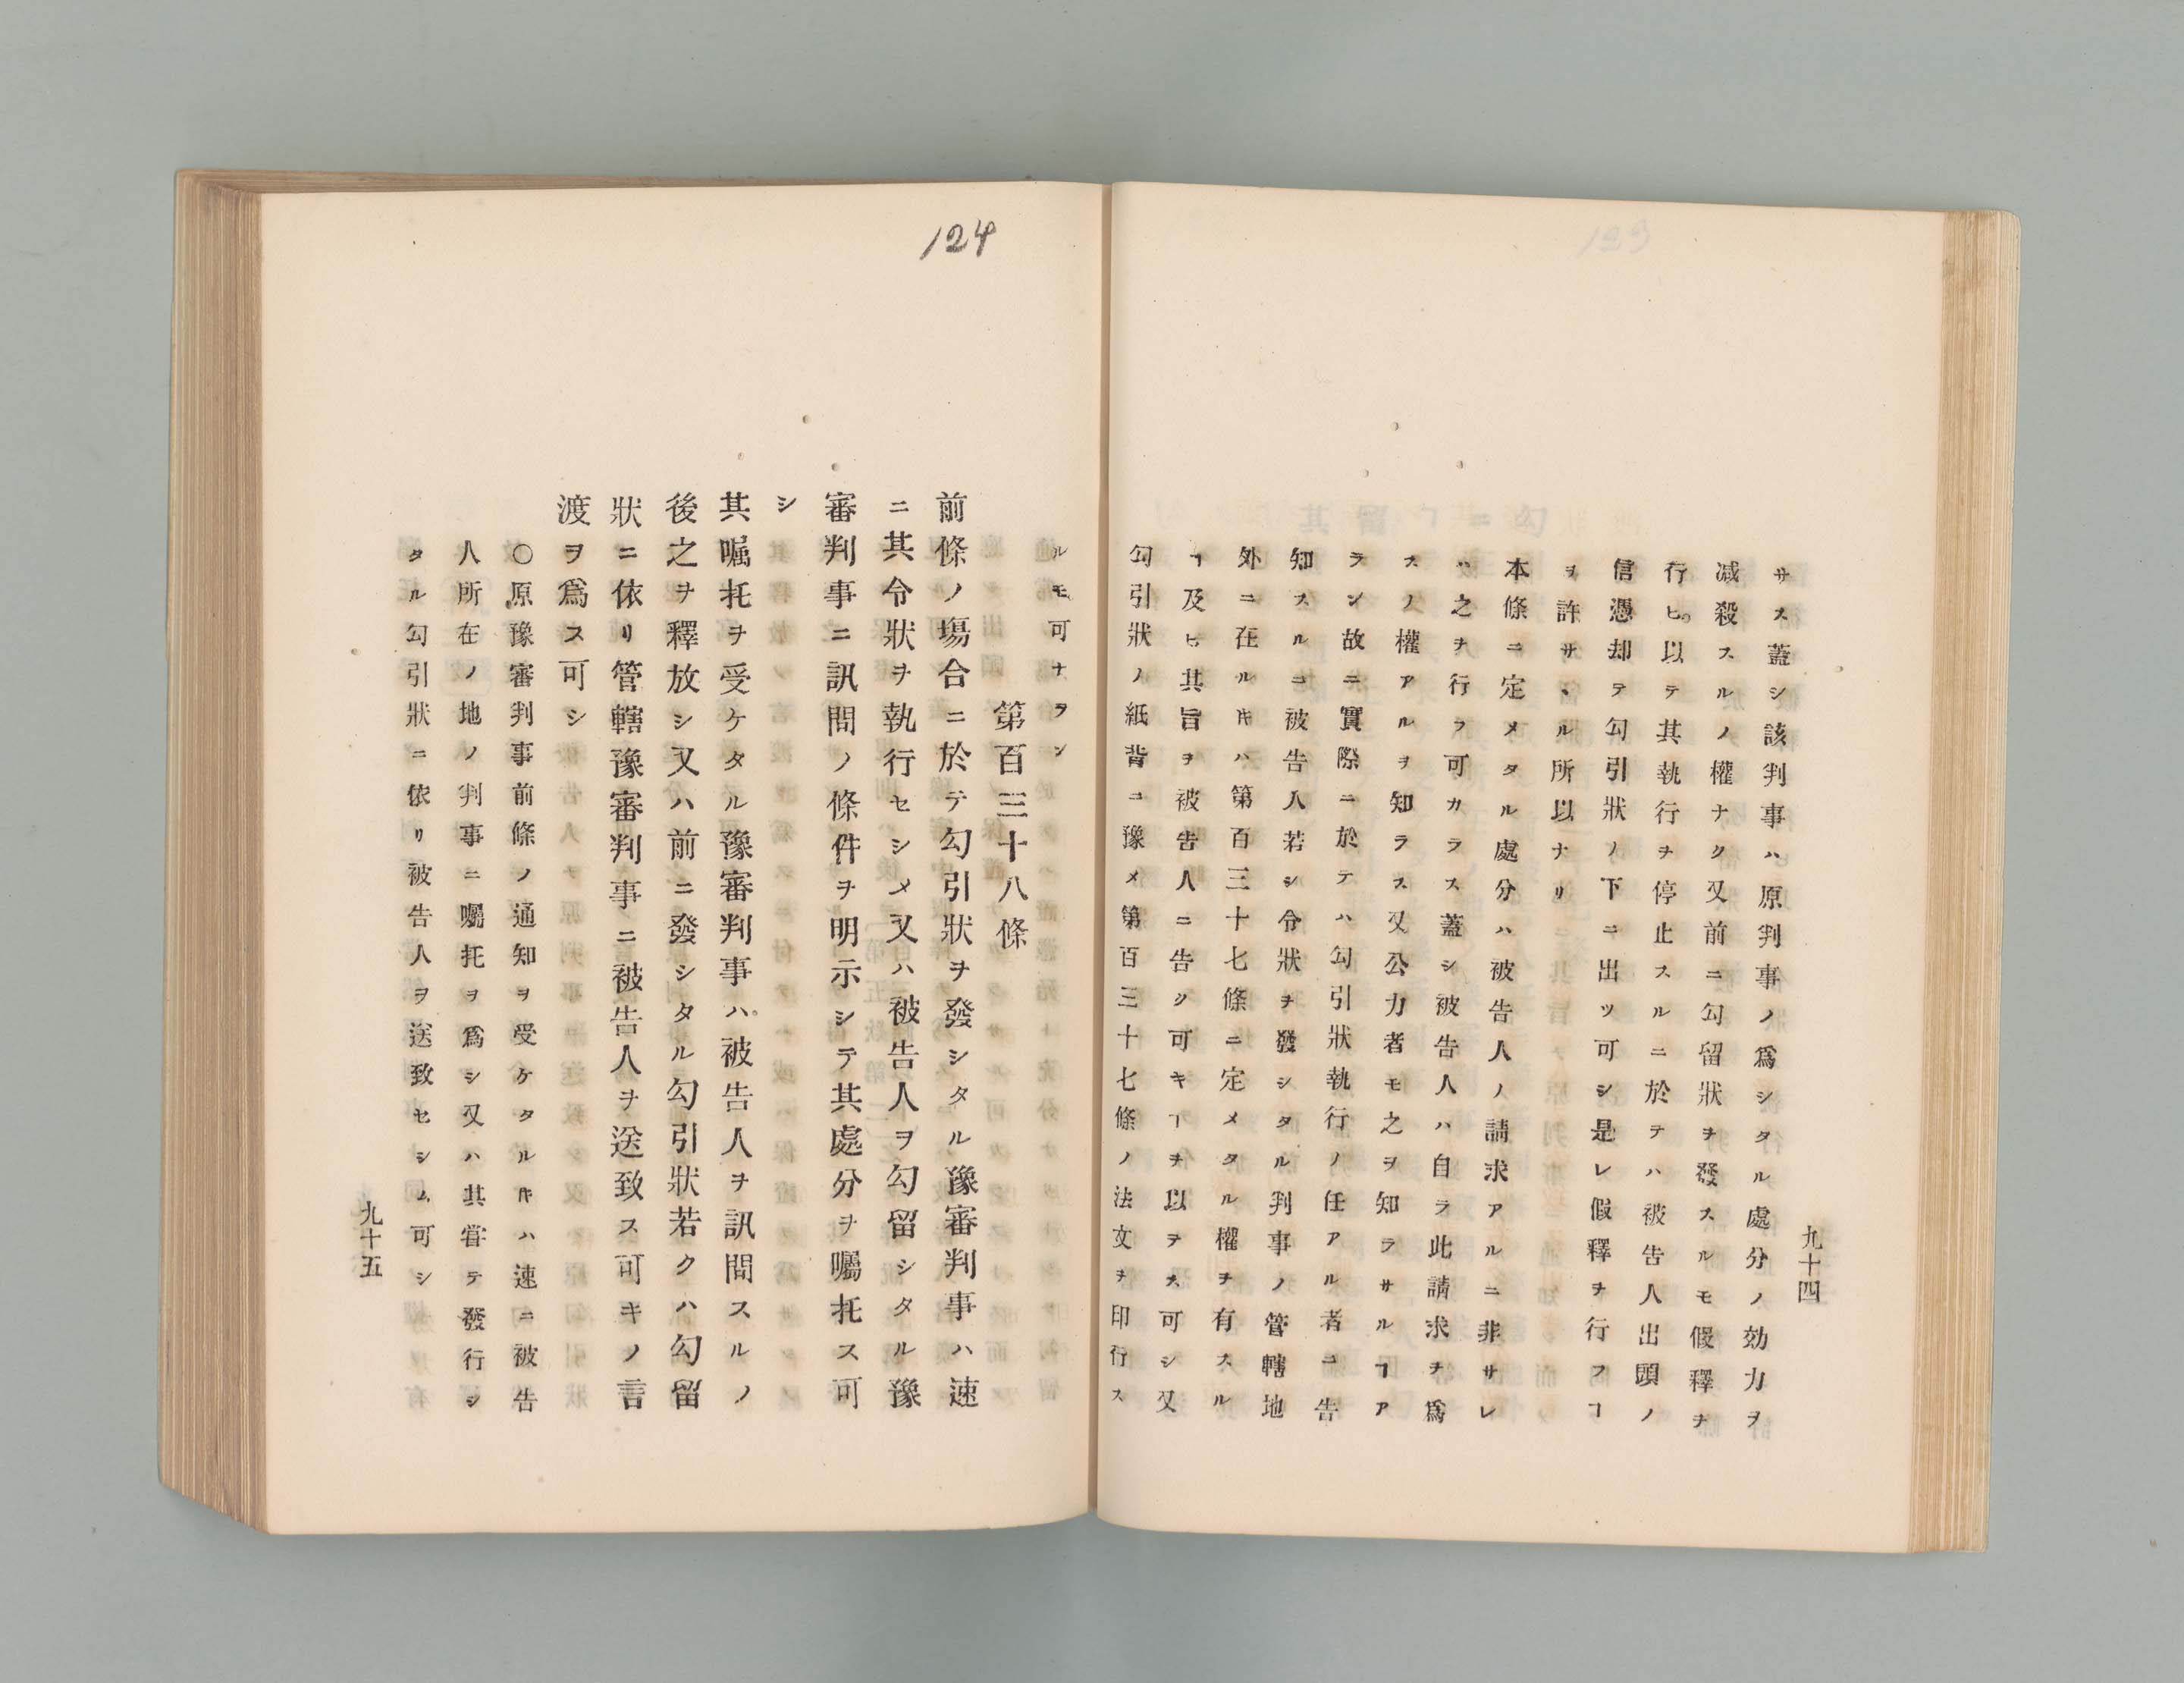 九十四
サス蓋シ該判事ハ原判事ノ爲シタル處分ノ効力ヲ
减殺スルノ權ナク又前ニ勾留狀ヲ發スルモ假釋ヲ
行ヒ以テ其執行ヲ停止スルニ於テハ被告人出頭ノ
信憑却テ勾引狀ノ下ニ出ツ可シ是レ假釋ヲ行フヿ
ヲ許サヽル所以ナリ
本條ニ定メタル處分ハ被告人ノ請求アルニ非サレ
ハ之ヲ行ラ可カラス蓋シ被告人ハ自ラ此請求ヲ爲
スノ權アルヲ知ラス又公力者モ之ヲ知ラサルヿア
ラン故ニ實際ニ於テハ勾引狀執行ノ任アル者ニ告
知スルニ被告人若シ令狀ヲ發シタル判事ノ管轄地
外ニ在ルキハ第百三十七條ニ定メタル權ヲ有スル
ヿ及ヒ其旨ヲ被告人ニ告ク可キヿヲ以テス可シ又
勾引狀ノ紙背ニ豫メ第百三十七條ノ法文ヲ印行ス
124
ルモ可ナラン
第百三十八條
前條ノ塲合ニ於テ勾引狀ヲ發シタル豫審判事ハ速
ニ其令狀ヲ執行セシメ又ハ被告人ヲ勾留シタル豫
審判事ニ訊問ノ條件ヲ明示シテ其處分ヲ囑托ス可
シ
其囑托ヲ受ケタル豫審判事ハ被告人ヲ訊問スルノ
後之ヲ釋放シ又ハ前ニ發シタル勾引狀若クハ勾留
狀ニ依リ管轄豫審判事ニ被告人ヲ送致ス可キノ言
渡ヲ爲ス可シ
○原豫審判事前條ノ通知ヲ受ケタルキハ速ニ被告
人所在ノ地ノ判事ニ囑托ヲ爲シ又ハ其甞テ發行シ
タル勾引狀ニ依リ被告人ヲ送致セシム可シ
九十五